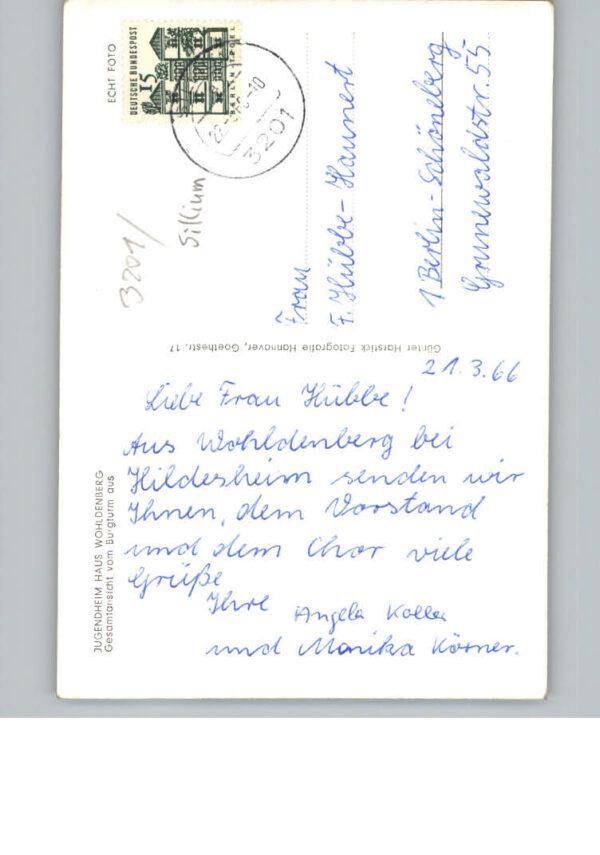 ECHT FOTO
DEUTSCHE BUNDESPOST
15
BERLIN TEGEL
3201
3201/
Sillium
Frau
F. Hübbe-Haunert
1 Berlin-Schöneberg
Grunewaldstr. 55
Günter Harstick Fotografie Hannover, Goethestr. 17
21.3.66
Liebe Frau Hübbe!
Aus Wohldenberg bei
Hildesheim senden wir
Ihnen, dem Vorstand
und dem Chor viele
Grüße
Ihre Angela Koller
und Monika Körner.
JUGENDHEIM HAUS WOHLDENBERG
Gesamtansicht vom Burgturm aus